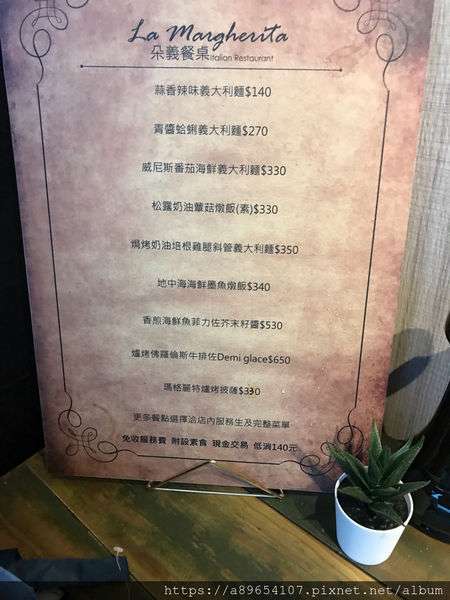 La Margherita
朵義餐桌Italian Restaurant
蒜香辣味義大利麵$140
青醬蛤蜊義大利麵$270
威尼斯番茄海鮮義大利麵$330
松露奶油蕈菇燉飯(素)$330
焗烤奶油培根雞腿斜管義大利麵$350
地中海海鮮墨魚燉飯$340
香煎海鮮魚菲力佐芥末籽醬$530
爐烤佛羅倫斯牛排佐Demi glace$650
瑪格麗特爐烤披薩$330
更多餐點選擇洽店內服務生及完整菜單
免收服務費 附設素食 現金交易 低消140元
https://a89654107.pixnet.net/album